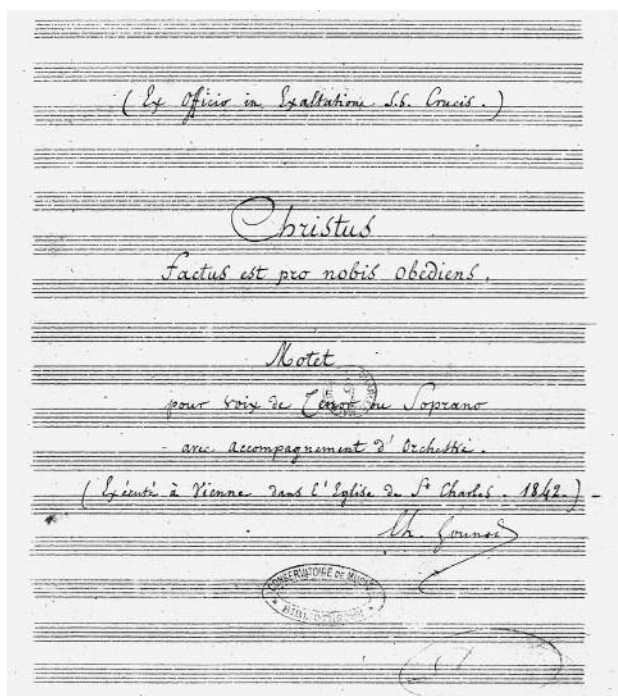 (Ex Officio in Exaltatione S.S. Crucis.)
Christus
Factus est pro nobis obediens.
Motet
pour voix de Tenor ou Soprano
avec accompagnement d'Orchestre.
(Exécuté à Vienne dans l'Eglise de St Charles. 1842.)
Ch. Gounod
CONSERVATOIRE DE MUSIQUE